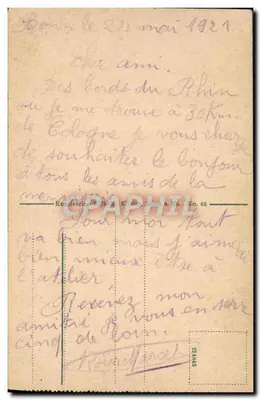 le 24 mai 1921
Cher ami.
Des bords du Rhin
ou je me trouve à 30 Km
de Cologne je vous charge
de souhaiter le bonjour
à tous les amis de la
CPAPHIL
No. 65
Pour moi tout
va bien mais j'aimerai
bien mieux être à
l'atelier
Recevez mon
amitié je vous en serre
cinq de loin.